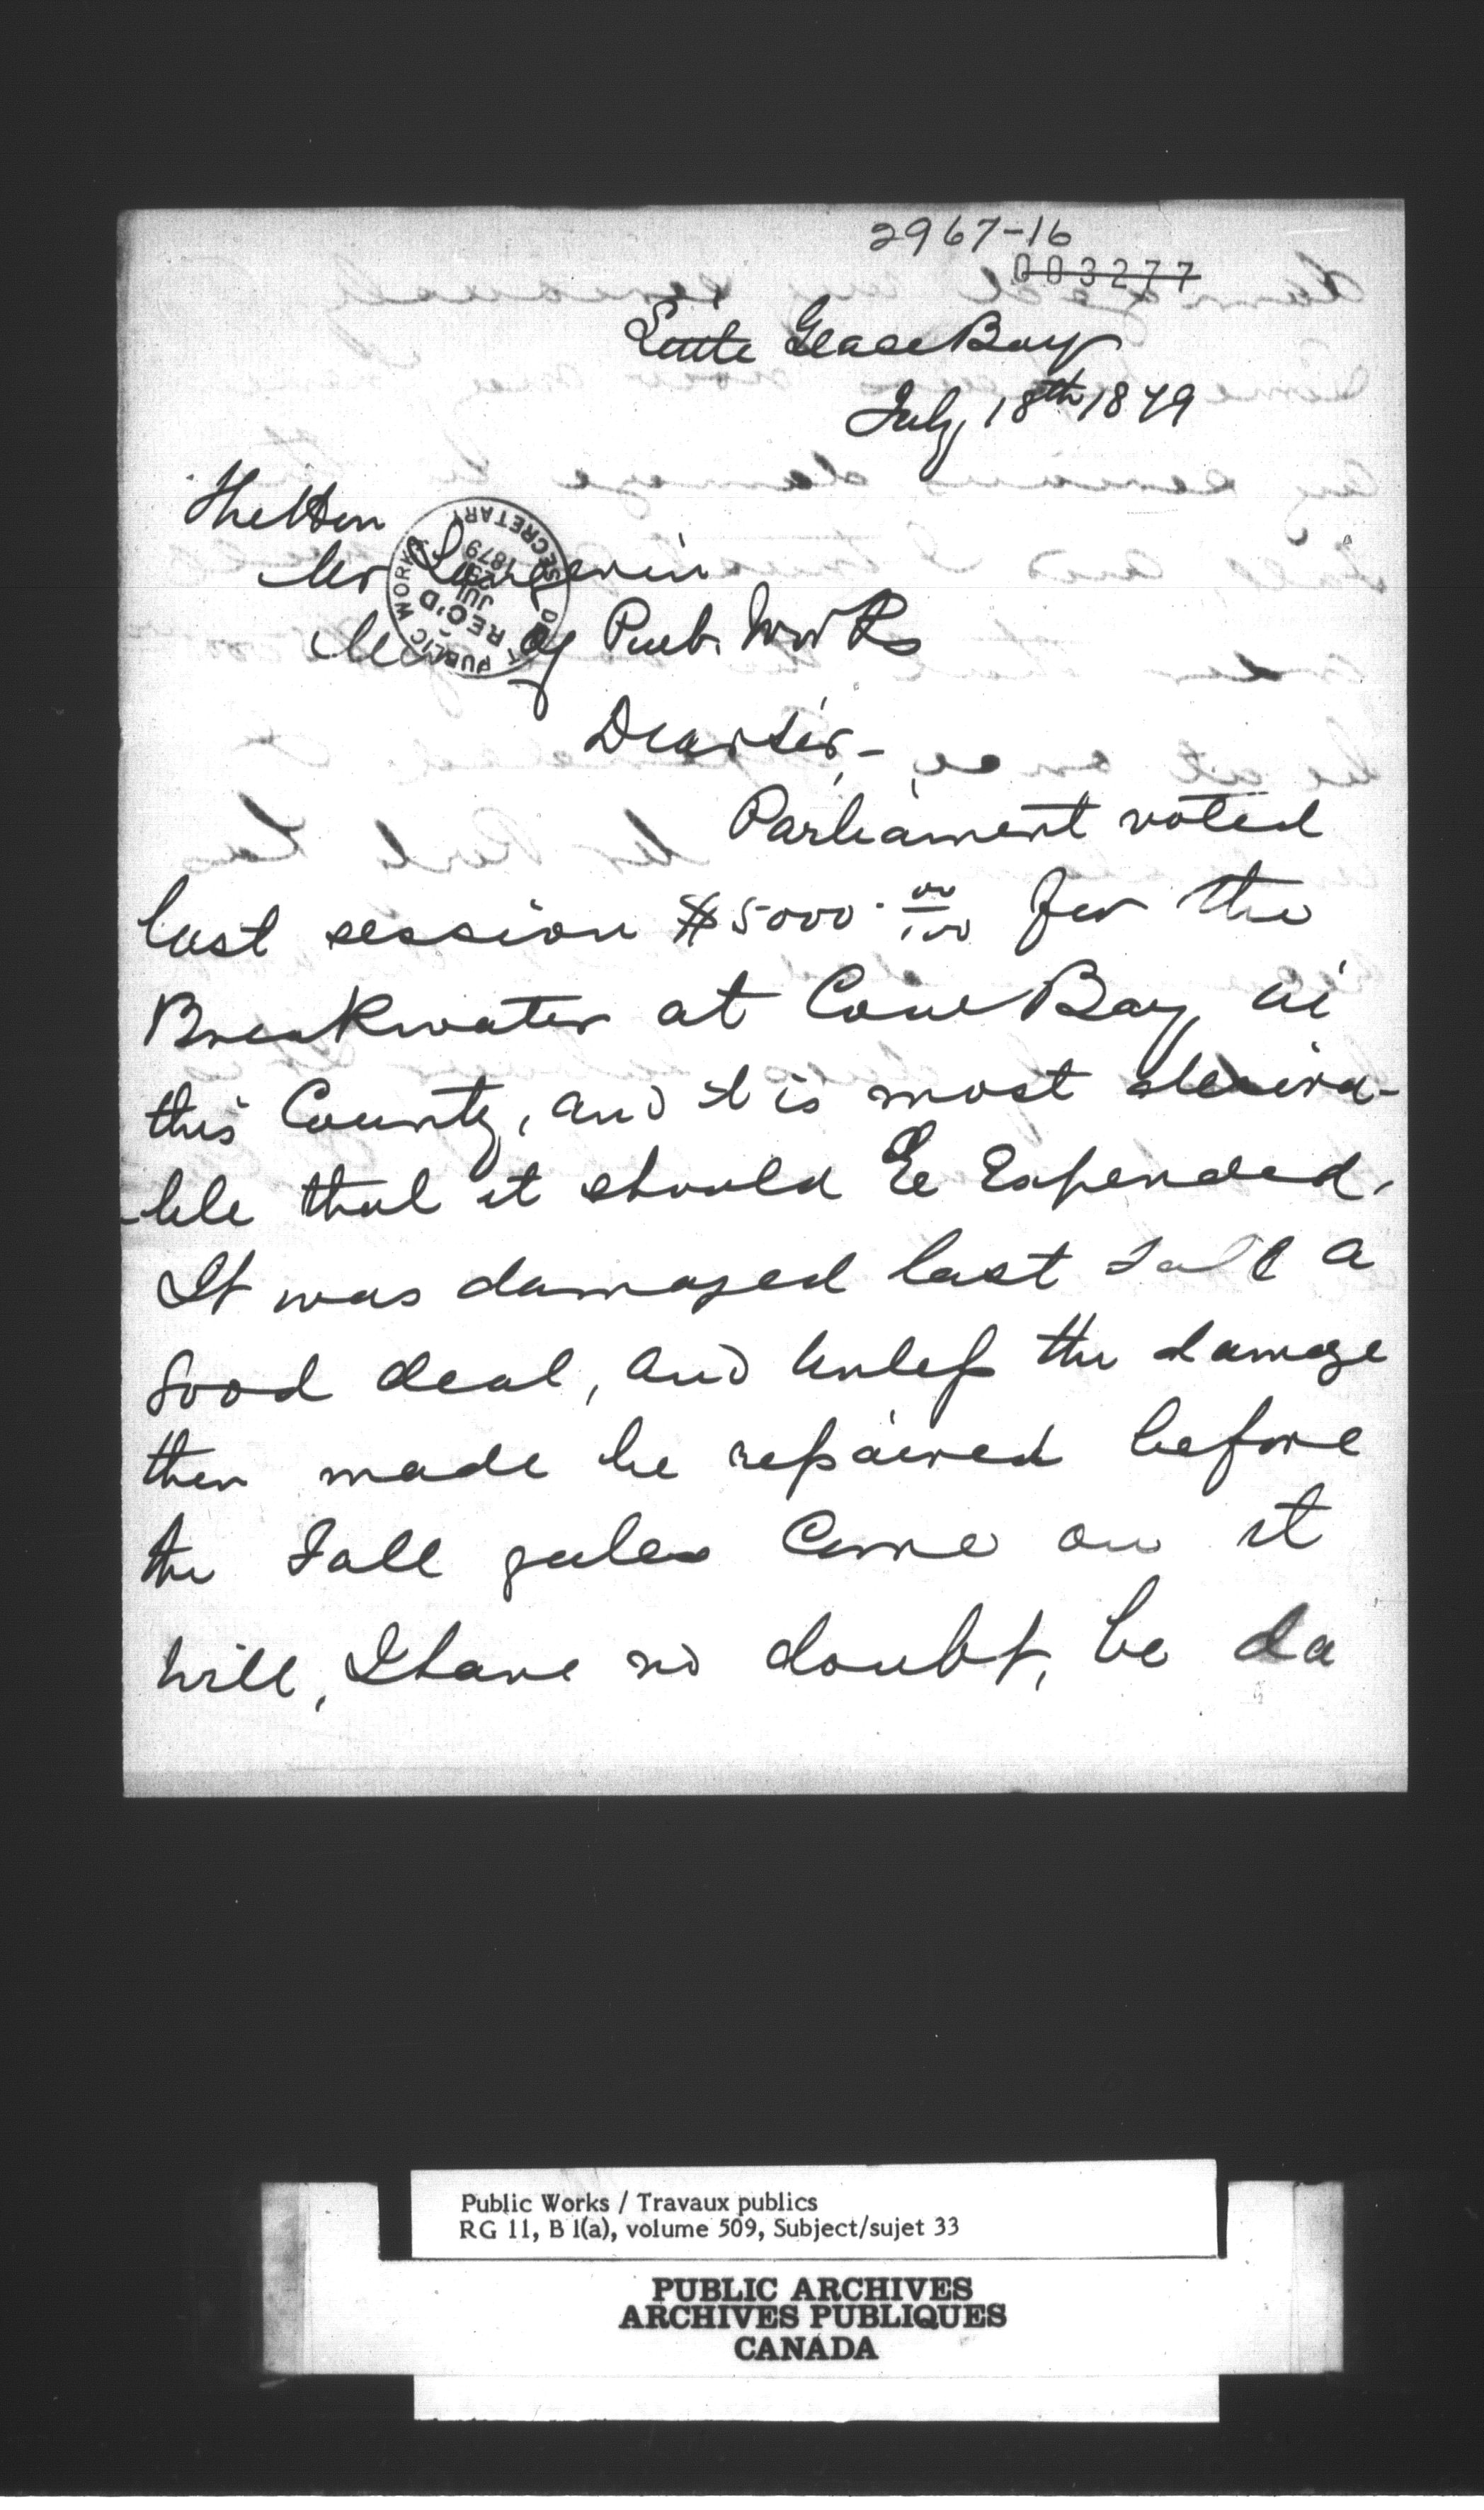 2967-16
003277
Little Glace Bay
July 18th 1879
The Hon
Mr Langevin
Min of Pub. Works
PUBLIC WORKS DEPT SECRETARY
REC'D
JUL
1879
Dear Sir, -
Parliament voted
last session $5000. 00/100 for the
Breakwater at Cow Bay, in
this County, and it is most desira-
-ble that it should be Expended.
It was damaged last Fall a
good deal, and unless the damage
then made be repaired before
the Fall gales come on it
will, I have no doubt, be da
Public Works / Travaux publics
RG 11, B 1(a), volume 509, Subject/sujet 33
PUBLIC ARCHIVES
ARCHIVES PUBLIQUES
CANADA